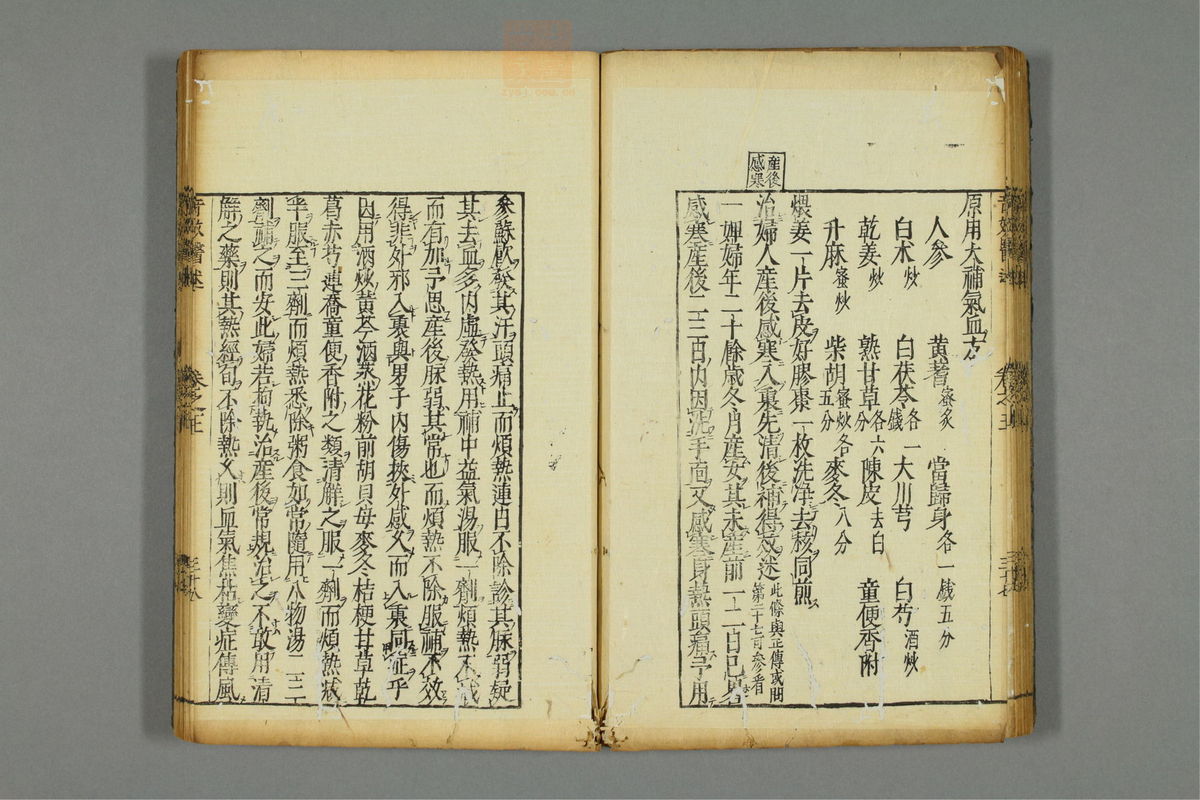 原用大補氣血方
人參　黃耆蜜炙　當歸身各一錢五分
白朮炒　白茯苓各一錢　大川芎　白芍酒炒
乾姜炒　熟甘草各六分　陳皮去白　童便香附
升麻蜜炒　柴胡蜜炒各五分　麥冬八分
煨姜一片去皮好膠棗一枚洗淨去核同煎
產後感寒
治婦人產後感寒入裏先清後補得效迷此條與正傳或問第二十七可參看
一婢婦年二十餘歲冬月產安其未產前一二日已
感寒產後二三日內因洗手面又感寒身熱頭痛予用
參蘇飲發其汗頭痛止而煩熱連日不除診其脉弱疑
其去血多內虛發熱用補中益氣湯服一劑煩熱不減
而有加予思產後脉弱其常也而煩熱不除服補不效
得非外邪入裏與男子內傷挾外感久而入裏同症乎
因用酒炒黃芩酒蒸花粉前胡貝母麥冬桔梗甘草乾
葛赤芍連喬童便香附之類清解之服一劑而煩熱減
半服至三劑而煩熱悉除粥食如常隨用八物湯二三
劑補之而安此婦若拘執治產後常規治之不敢用清
解之藥則其熱經旬不除熱久則血氣焦枯變症傳風
卷之五
三十八